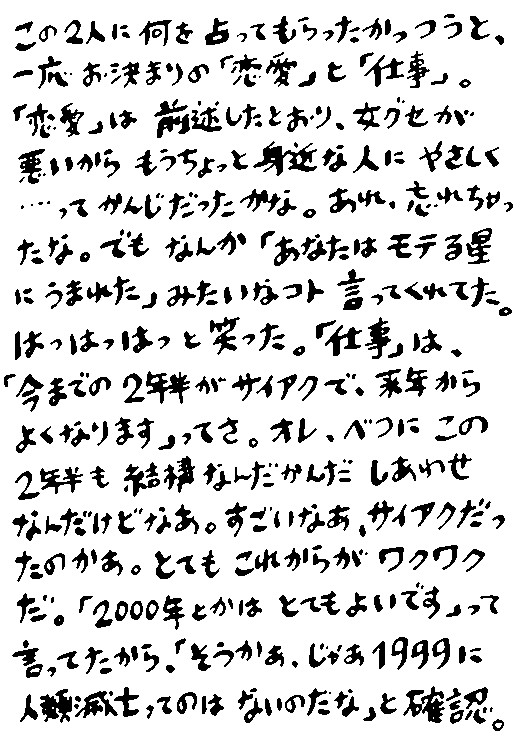 この2人に何を占ってもらったかっつうと、
一応お決まりの「恋愛」と「仕事」。
「恋愛」は前述したとおり、女グセが
悪いからもうちょっと身近な人にやさしく
‥‥ってかんじだったかな。あれ、忘れちゃっ
たな。でもなんか「あなたはモテる星
にうまれた」みたいなコト言ってくれてた。
はっはっはっと笑った。「仕事」は、
「今までの2年半がサイアクで、来年から
よくなります」ってさ。オレ、べつにこの
2年半も結構なんだかんだしあわせ
なんだけどなあ。すごいなあ、サイアクだっ
たのかあ。とてもこれからがワクワク
だ。「2000年とかはとてもよいです」って
言ってたから、「そうかあ、じゃあ1999に
人類滅亡ってのはないのだな」と確認。